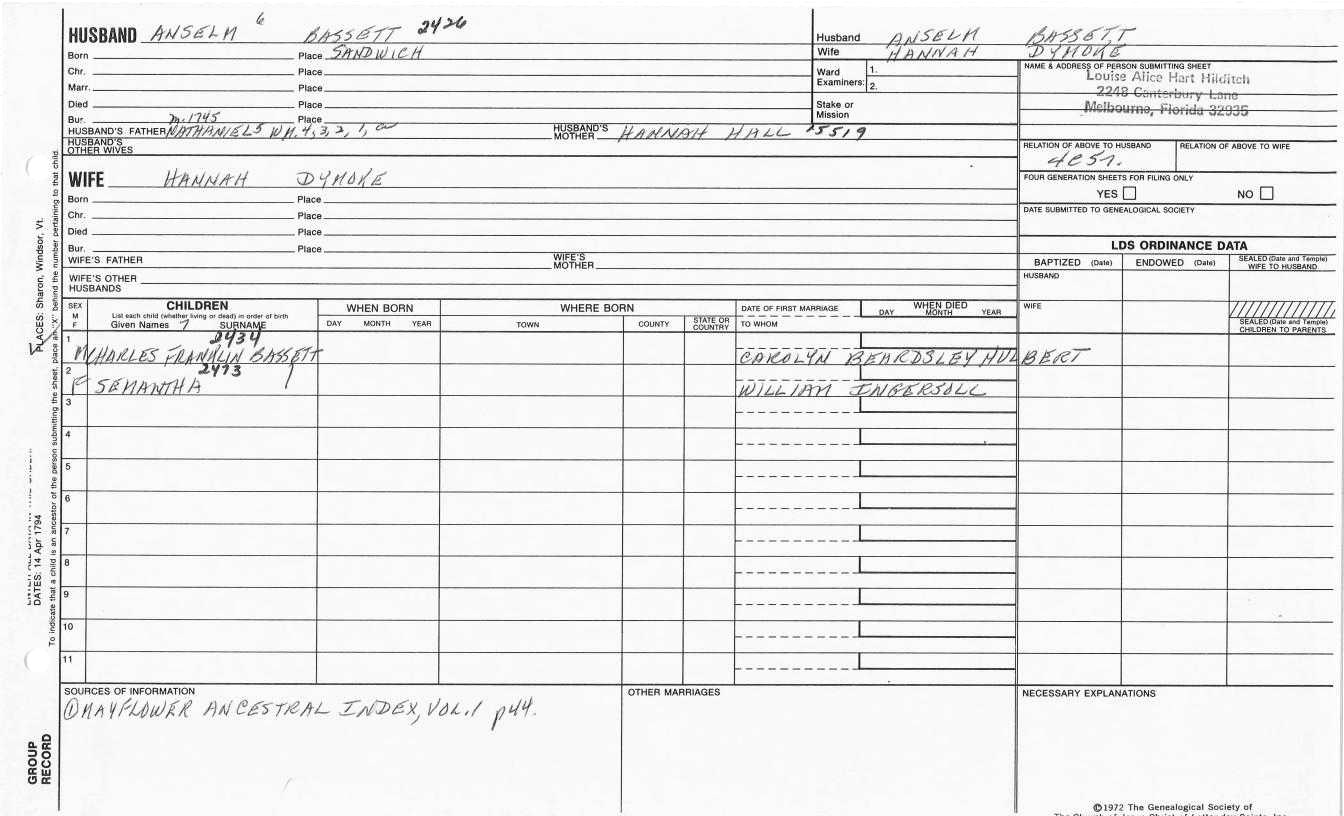 HUSBAND ANSELM 6 BASSETT 2426
Born Place SANDWICH
Chr. Place
Marr. Place
Died Place
Bur. m.1745 Place
HUSBAND'S FATHER NATHANIEL5 WM. 4, 3, 2, 1,
HUSBAND'S MOTHER HANNAH HALL 5519
HUSBAND'S OTHER WIVES
WIFE HANNAH DYMOKE
Born Place
Chr. Place
Died Place
Bur. Place
WIFE'S FATHER WIFE'S MOTHER
WIFE'S OTHER HUSBANDS
Husband ANSELM BASSETT
Wife HANNAH DYMOKE
Ward Examiners: 1. 2.
Stake or Mission
NAME & ADDRESS OF PERSON SUBMITTING SHEET
Louise Alice Hart Hilditch
2248 Canterbury Lane
Melbourne, Florida 32935
RELATION OF ABOVE TO HUSBAND RELATION OF ABOVE TO WIFE
FOUR GENERATION SHEETS FOR FILING ONLY
YES NO
DATE SUBMITTED TO GENEALOGICAL SOCIETY
LDS ORDINANCE DATA
BAPTIZED (Date) ENDOWED (Date) SEALED (Date and Temple) WIFE TO HUSBAND
HUSBAND
WIFE
SEALED (Date and Temple) CHILDREN TO PARENTS
SEX M F
CHILDREN
List each child (whether living or dead) in order of birth
Given Names 7 SURNAME
WHEN BORN
DAY MONTH YEAR
WHERE BORN
TOWN COUNTY STATE OR COUNTRY
DATE OF FIRST MARRIAGE
TO WHOM
WHEN DIED
DAY MONTH YEAR
1 2434
M CHARLES FRANKLIN BASSETT CAROLYN BEARDSLEY HULBERT
2 2473
F SEMANTHA WILLIAM INGERSOLL
3
4
5
6
7
8
9
10
11
SOURCES OF INFORMATION
① MAYFLOWER ANCESTRAL INDEX, VOL. 1 p44.
OTHER MARRIAGES
NECESSARY EXPLANATIONS
©1972 The Genealogical Society of
PLACES: Sharon, Windsor, Vt.
DATES: 14 Apr 1794
To indicate that a child is an ancestor of the person submitting the sheet, place an "X" behind the number pertaining to that child.
GROUP RECORD